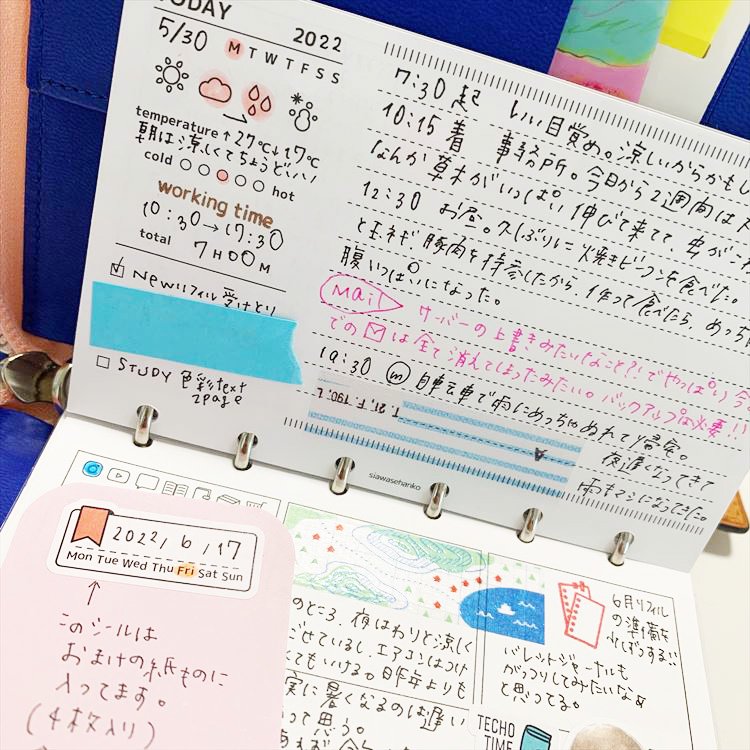 TODAY
5/30
2022
M T W T F S S
temperature ↑27℃↓17℃
朝は涼しくてちょうどいい
cold ○○○○○ hot
working time
10:30→17:30
total 7H00M
☑ Newリフィル受けとり
☐ STUDY 色彩text
2page
7:30 起 いい目覚め。涼しいからかもし
10:15 着 事務所。今日から2週間は
なんか草木がいっぱい伸びて来てて、虫がこ
12:30 お昼。久しぶりに焼きビーフンを食べた。
と玉ネギ豚肉を持参したから、作って食べたら、めっち
腹いっぱいになった。
Mail サーバーの上書きみたいなこと?!でやっぱり今
での✉は全て消えてしまったみたい。バックアップは必要!!
19:30 m 自転車で雨にめっちゃぬれて帰宅。
T.21, F.T90.L
夜遅くなってきて
雨もマシになってきた。
siawasehanko
2022/6/17
Mon Tue Wed Thu Fri Sat Sun
↑
このシールは
おまけの紙ものに
入ってます。
(4枚入り)
のところ、夜はわりと涼しく
ごせているし、エアコンはつけ
くてもいける。昨年よりも
実に暑くなるのは遅い
って思う。
6月リフィル
の準備を
バレットジャーナルも
がっつりしてみたいなぁ
と思ってる。
TECHO
TIME